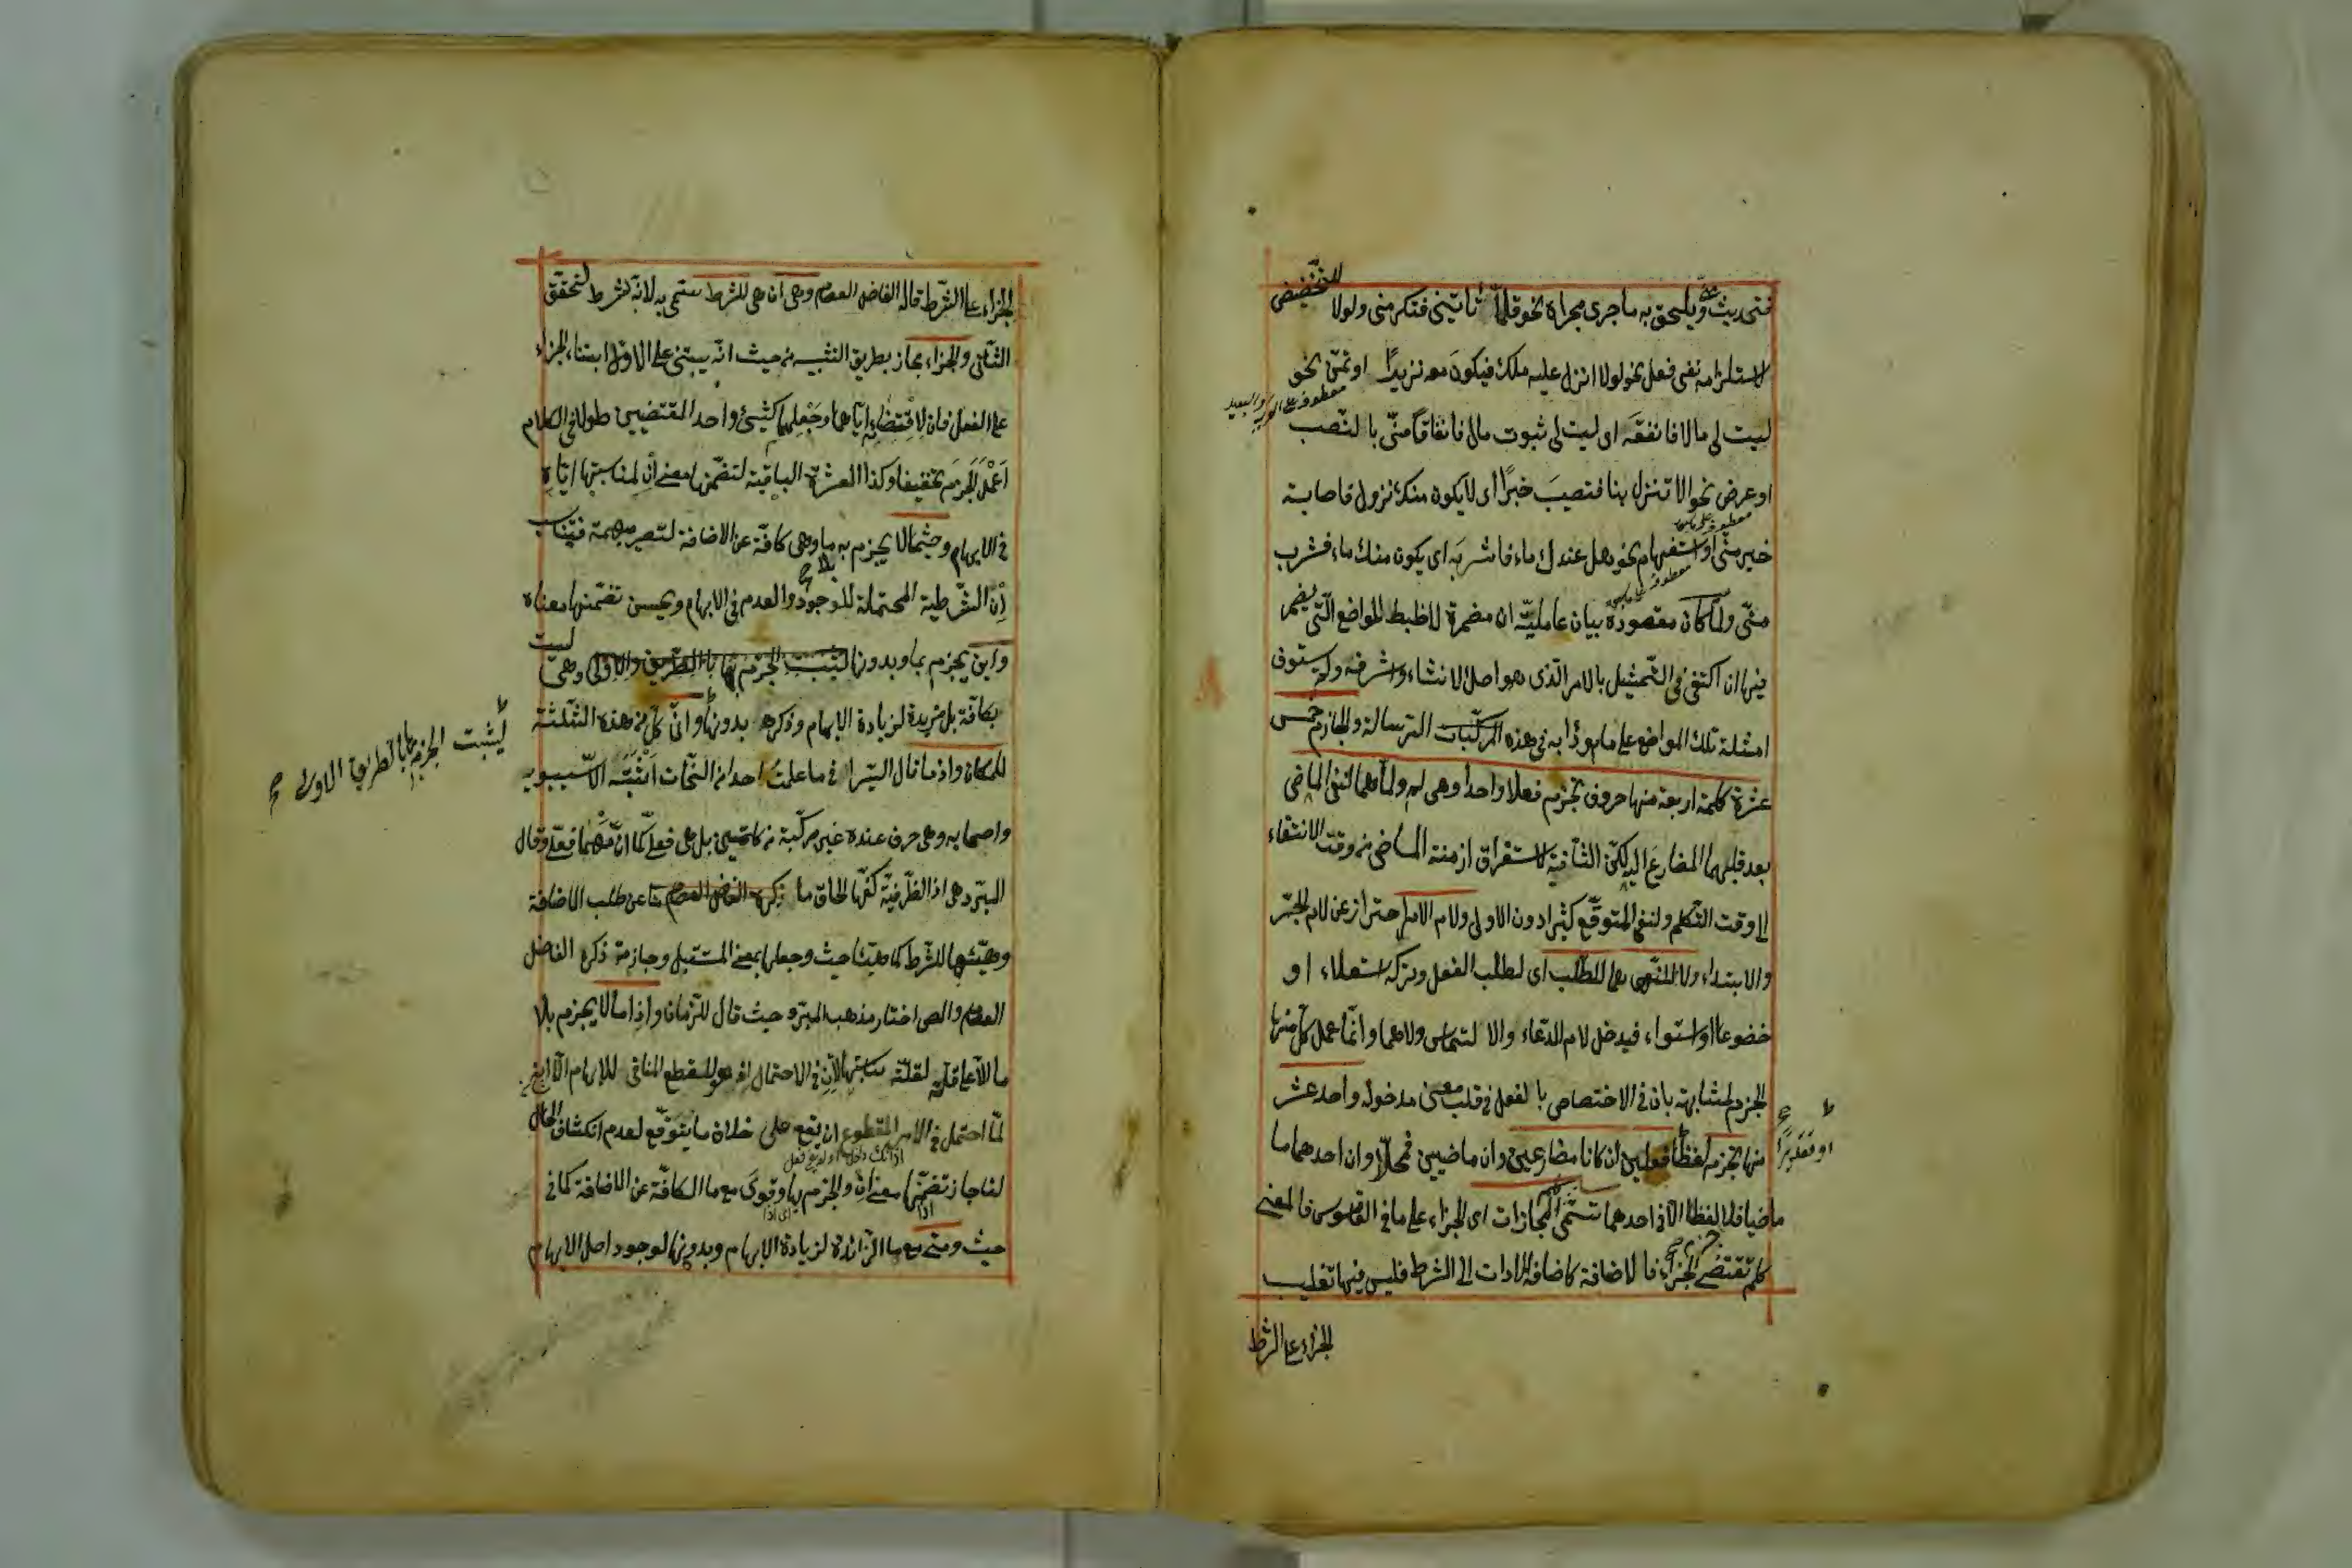 فتحديث ويلحق به ما جرى مجراه نحو قلّما تأتيني فتكرمني ولولا للتحضيض
لاستلزامه نفى فعل نحو لولا انزل عليه ملك فيكونَ معه نذيرًا او تمنّ نحو
ليت لى مالا فانفقَه اى ليت لى ثبوت مال فانفاقًا منّى بالنّصب
معطوف على القريب والبعيد
او عرض نحو الا تنزل بنا فتصيبَ خيرًا اى لا يكون منك نزول فاصابة
خير منّى او استفهام نحو هل عندك ماء فاشربَه اى يكون منك ماء فشرب
منّى ولمّا كان مقصوده بيان عامليّة ان مضمرة لا ضبط المواضع الّتى يضمر
فيها ان اكتفى فى التّمثيل بالامر الّذى هو اصل الانشاء واشرفه ولم يستوف
امثلة تلك المواضع على ما فى هذه الرسالة والجازم خمس
عشرة كلمة اربعة منها حروف تجزم فعلا واحدا وهى لم ولمّا هما لنفى الماضى
بعد قلبهما المضارع اليه لكنّ الثانية لاستغراق ازمنة الماضى من وقت الانتفاء
الى وقت التكلم ولنفى المتوقّع كثيرا دون الاولى ولام الامر احتراز عن لام الجرّ
والابتداء ولا النّهى هما للطّلب اى لطلب الفعل وتركه استعلاء او
خضوعا او استواء فيدخل لام الدّعاء والالتماس ولاهما وانّما عمل كلّ منها
الجزم لمشابهته بان فى الاختصاص بالفعل فى قلب معنى مدخوله واحد عشر
منها تجزم لفظًا فعلين ان كانا مضارعين وان ماضيين فمحلّا وان احدهما ما
او تقديرًا صح
ماضيا فلا لفظا الّا فى احدهما تسمّى كلم المجازات اى الجزاء على ما فى القاموس فالمعنى
كلم تقتضى الجزاء فالاضافة كاضافة الادات الى الشرط فليس فيها تغليب
الجزاء على الشرط
الجزاء على الشّرط قاله الفاضل العصام وهى ان هى للشرط سمّى به لانّه شرط لتحقق
الثانى والجزاء مجاز بطريق التشبيه من حيث انّه يبتنى على الاوّل ابتناء الجزاء
على الفعل فان لاقتضائه ايّاهما وجعلهما كشىء واحد المقتضيين طولا فى الكلام
اعمل الجزم تخفيفا وكذا العشرة الباقية لتضمّنها معنى إن لمناسبتها ايّاه
فى الابهام وحيثما لا يجزم به ما وهى كافّة عن الاضافة لتصير مبهمة فتناسب
إن الشّرطية المحتملة للوجود والعدم فى الابهام ويحسن تضمّنها معناه
واين يجزم بما وبدونها ليثبت الجزم بها بالطّريق الاولى وهى ليست
ليثبت الجزم بها بالطريق الاولى صح
بكافّة بل مزيدة لزيادة الابهام وذكره بدونها وانّى كلّ من هذه الثّلثة
للمكان واذما قال السيرافى ما علمتُ احدا من النّحات اثبته الّا سيبويه
واصحابه وهى حرف عنده غير مركّبة من كلمتين بل هى فعلى كما انّ مهما فعلى وقال
المبرّد هى اذ الظّرفيّة كفّها الحاق ما عن طلب الاضافة
وهيّئتها للشّرط كما هيّئها حيث وجعلها بمعنى المستقبل وجازمة ذكره الفاضل
العصام والمص اختار مذهب المبرّد حيث قال للزّمان واذاما لا يجزم بلا
ما الّا على قلّة لقلّة مناسبتها لإن فى الاحتمال اذ هو للقطع المنافى للابهام الّا انّه
لمّا احتمل فى الامر المقطوع ان يقع على خلاف ما يتوقّع لعدم انكشاف الحال
لنا جاز تضمّنها معنى ان والجزم بها وقوى مع ما الكافّة عن الاضافة كما فى
حيث ومتى مع ما الزّائدة لزيادة الابهام وبدونها لوجود اصل الابهام